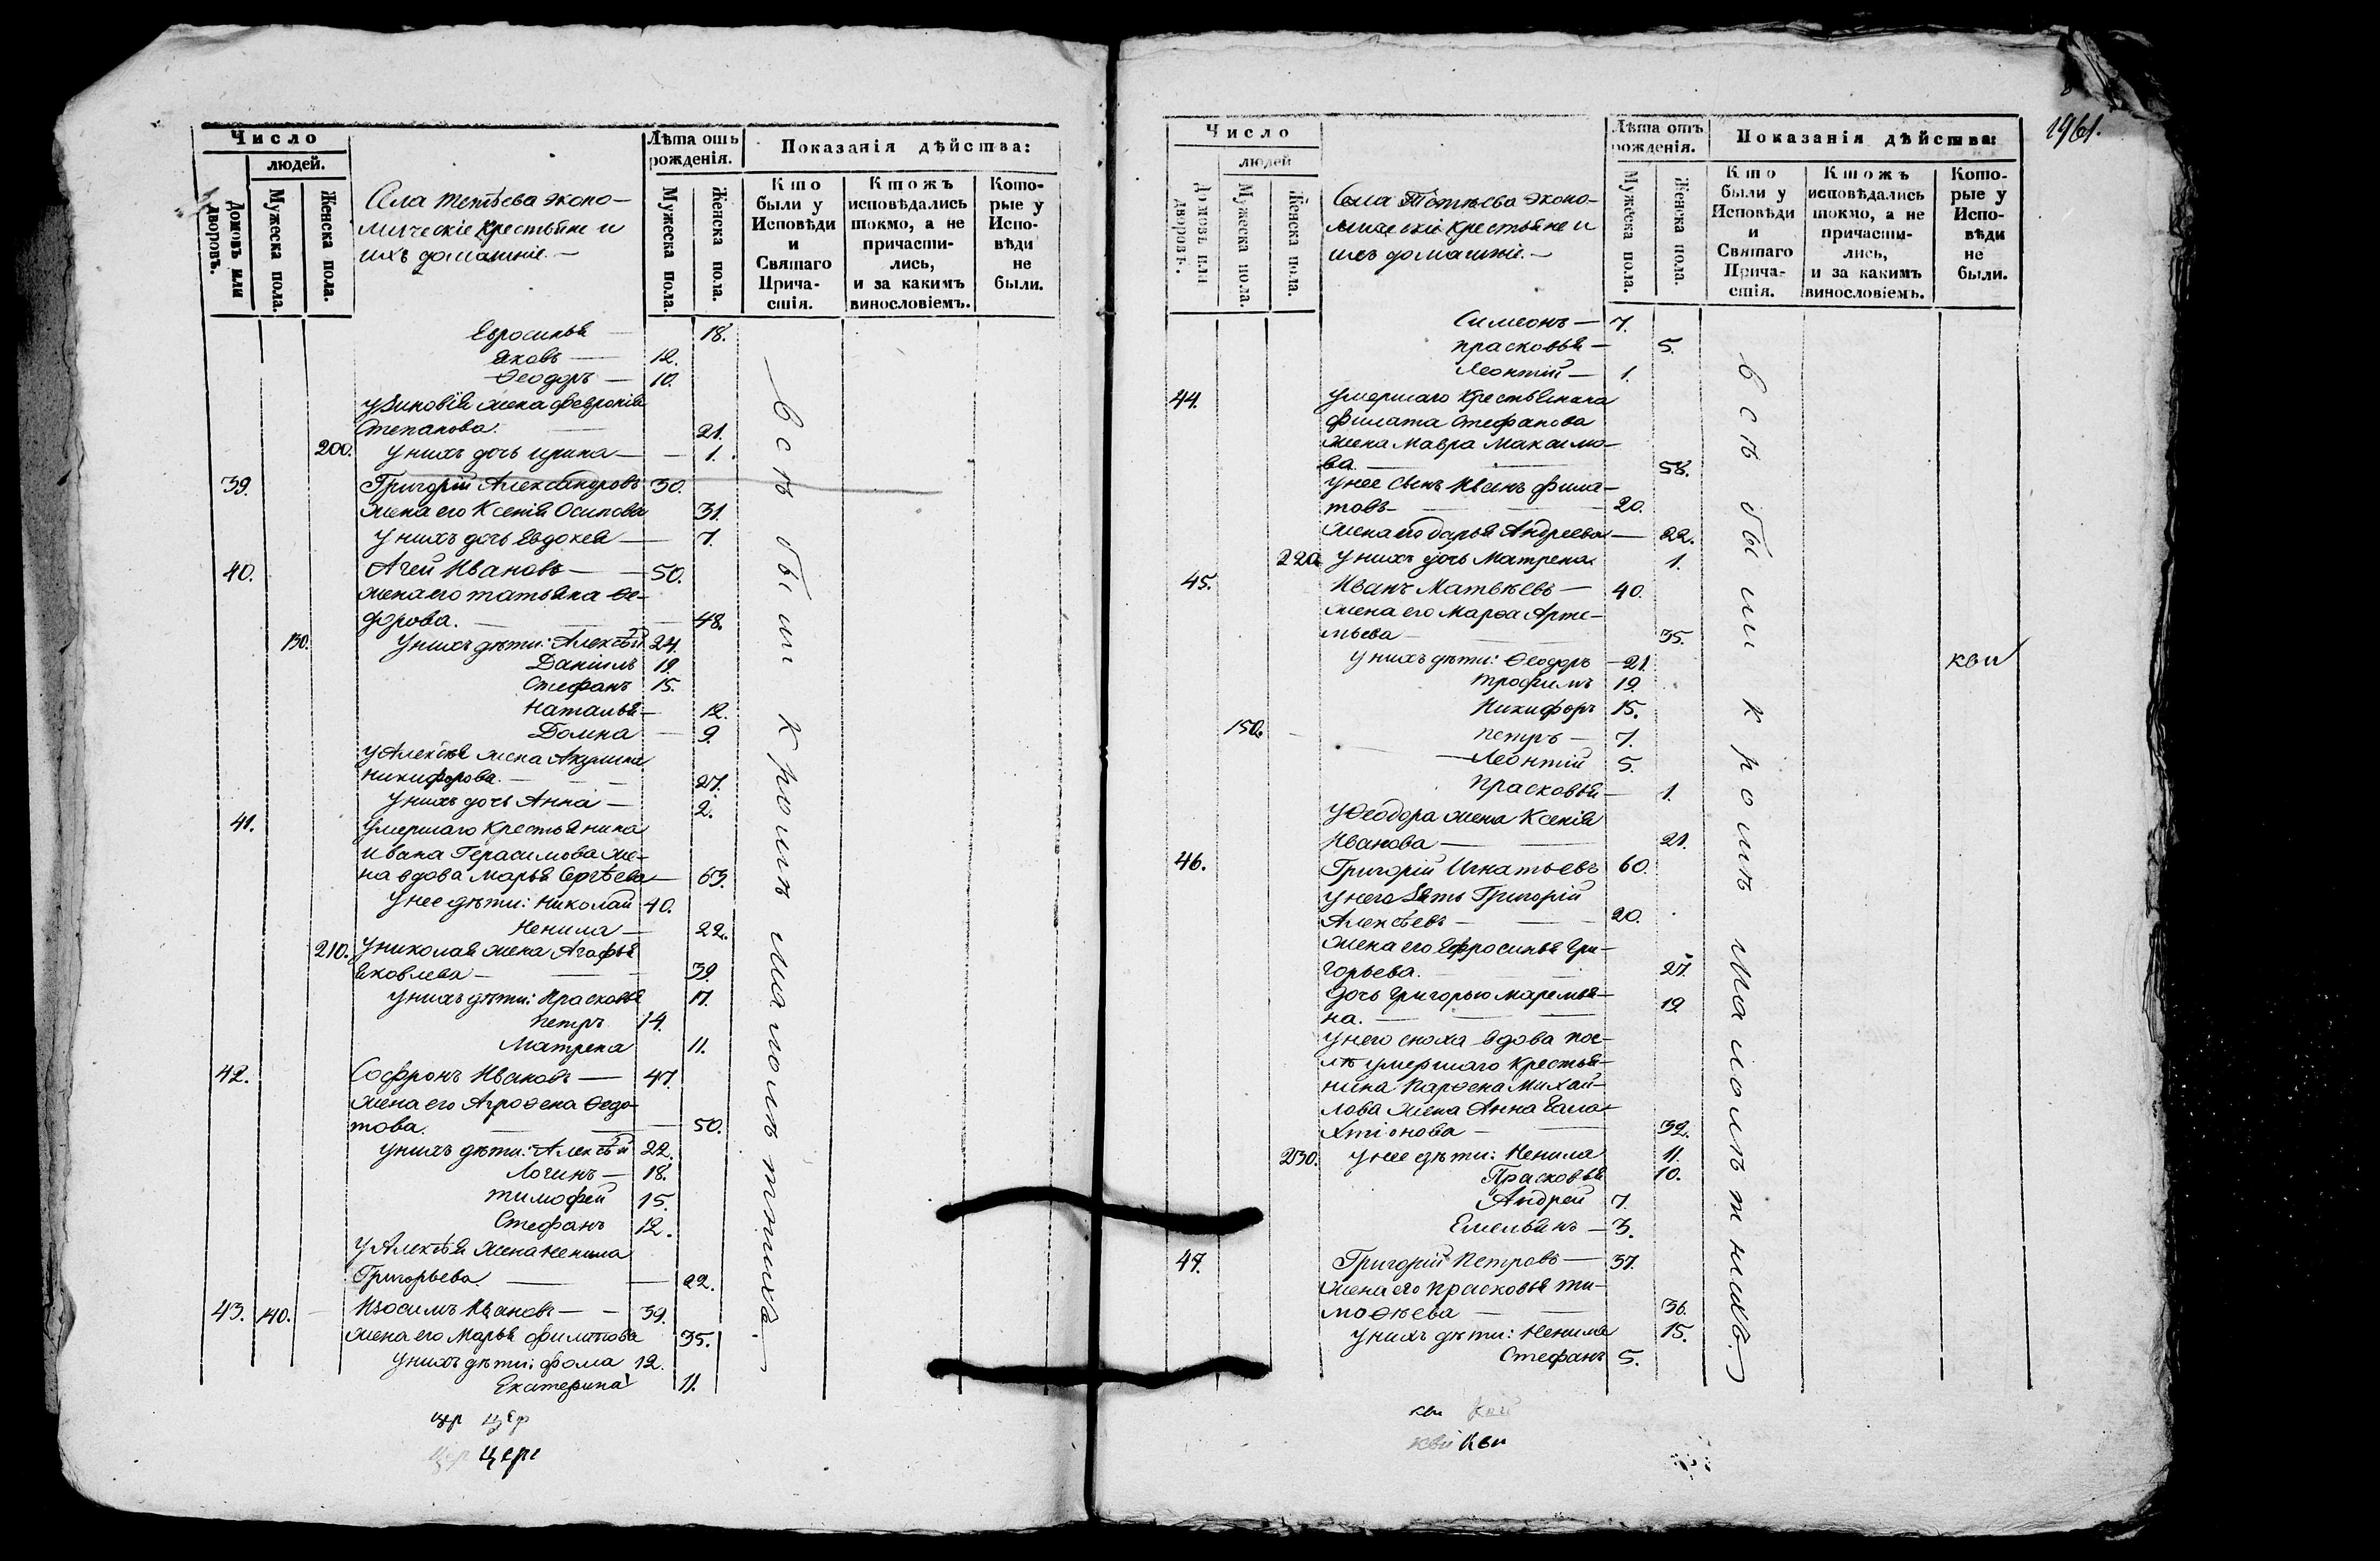 Число
людей.
Домовъ или дворовъ.
Мужеска пола.
Женска пола.
Села Тетѣева эконо-
мическіе крестьяне и
ихъ домашніе. —
Лѣта отъ
рожденія.
Мужеска пола.
Женска пола.
Показанія дѣйства:
Кто
были у
Исповѣди
и
Святаго
Прича-
стія.
Ктожъ
исповѣдались
токмо, а не
причасти-
лись,
и за какимъ
винословіемъ.
Кото-
рые у
Испо-
вѣди
не
были.
Евросинья — 18.
Яковъ — 12.
Ѳеодоръ — 10.
у Зиновія жена Феврония
Степанова. — 21.
200. у нихъ дочь Ирина — 1.
39. Григорій Александровъ 30.
жена его Ксенія Осипова 31.
у нихъ дочь Евдокея — 7.
40. Агей Ивановъ — 50.
жена его Татьяна Ѳе-
дорова. — 48.
130. у нихъ дѣти: Алексѣй 24.
Даніилъ 19.
Стефанъ 15.
Наталья — 12.
Домна — 9.
у Алексѣя жена Акулина
Никифорова. — 27.
у нихъ дочь Анна — 2.
41. умершаго крестьянина
Ивана Герасимова же-
на вдова Марья Сергѣева — 63.
у нее дѣти: Николай 40.
Ненила — 22.
210. у Николая жена Агафья
Яковлева — 39.
у нихъ дѣти: Прасковья 17.
Петръ 14.
Матрена 11.
42. Софронъ Ивановъ — 47.
жена его Агроѳена Ѳедо-
това. — 50.
у нихъ дѣти: Алексѣй 22.
Логинъ — 18.
Тимофей 15.
Стефанъ 12.
у Алексѣя жена Ненила
Григорьева — 22.
43. 140. Изосимъ Ивановъ — 39.
жена его Марья Филипова 35.
у нихъ дѣти: Фома 12.
Екатерина 11.
всѣ были кромѣ малолѣтнихъ.
цер цер
цер цере
1961.
Число
людей
Домовъ или дворовъ.
Мужеска пола.
Женска пола.
Села Тетѣева эконо-
мическіе крестьяне и
ихъ домашніе. —
Лѣта отъ
рожденія.
Мужеска пола.
Женска пола.
Показанія дѣйства:
Кто
были у
Исповѣди
и
Святаго
Прича-
стія.
Ктожъ
исповѣдались
токмо, а не
причасти-
лись,
и за какимъ
винословіемъ.
Кото-
рые у
Испо-
вѣди
не
были.
Симеонъ — 7.
Прасковья — 5.
Леонтій — 1.
44. умершаго крестьянина
Филата Стефанова
жена Мавра Максимо-
ва — 58.
у нее сынъ Иванъ Фила-
товъ — 20.
жена его Дарья Андреева — 22.
220. у нихъ дочь Матрена 1.
45. Иванъ Матвѣевъ — 40.
жена его Марѳа Арте-
мьева — 35.
у нихъ дѣти: Ѳеодоръ — 21.
Трофимъ 19.
Никифоръ 15.
150. Петръ — 7.
Леонтій 5.
Прасковья — 1.
у Ѳеодора жена Ксенія
Иванова — 21.
46. Григорій Игнатьевъ 60.
у него зять Григорій
Алексѣевъ — 20.
жена его Ефросинья Гри-
горьева. 27.
дочь Григорью Маремья-
на. — 19.
у него сноха вдова пос-
лѣ умершаго крестья-
нина Парѳена Михай-
лова жена Анна Гала-
хтіонова — 32.
230. у нее дѣти: Ненила 11.
Прасковья 10.
Андрей 7.
Емельянъ — 3.
47. Григорій Петровъ — 37.
жена его Прасковья Ти-
моѳѣева — 36.
у нихъ дѣти: Ненила 15.
Стефанъ 5.
всѣ были кромѣ малолѣтнихъ.
кви
кви кви
кви кви